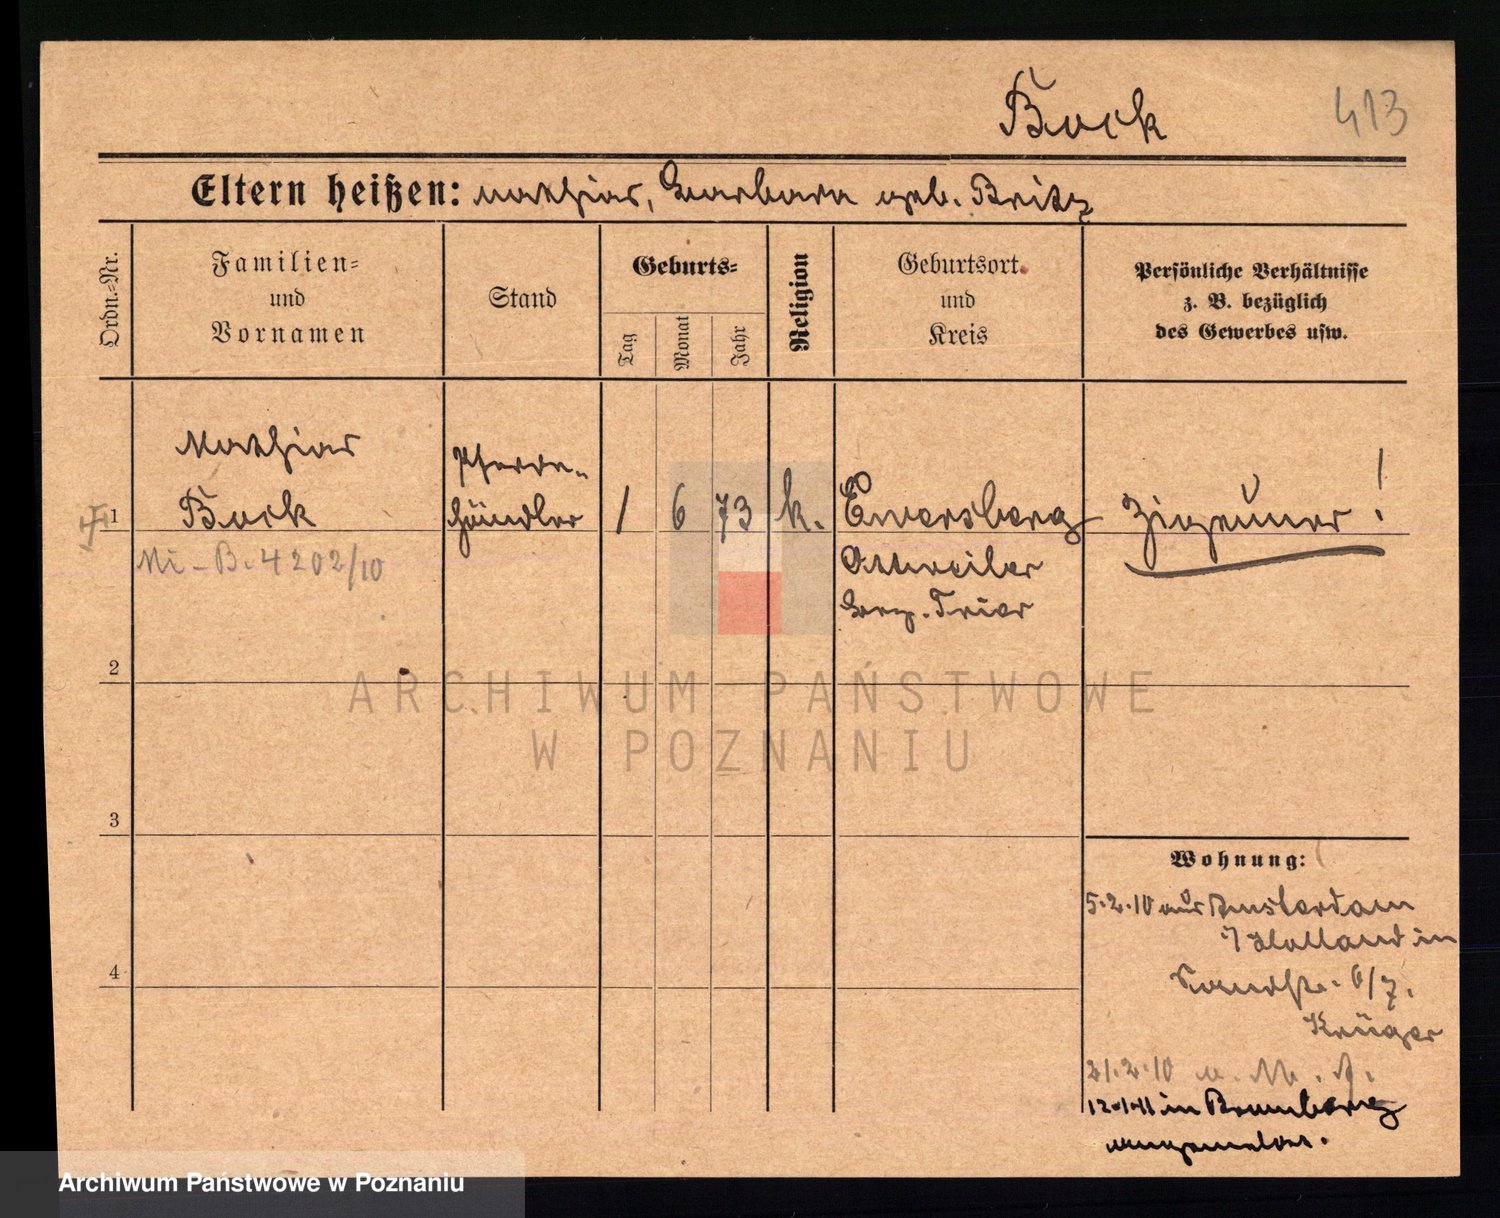 Bock 413
Eltern heißen: Mathias, Barbara geb. Britz
Ordn.-Nr.
Familien-
und
Vornamen
Stand
Geburts-
Tag
Monat
Jahr
Religion
Geburtsort
und
Kreis
Persönliche Verhältnisse
z. B. bezüglich
des Gewerbes usw.
Mathias
Pferde-
1 Bock händler 1 6 73 k. Ewersberg Zigeuner!
Mi-B. 4202/10
Ottweiler
Bez. Trier
2
ARCHIWUM PAŃSTWOWE
W POZNANIU
3
Wohnung:
5.2.10 aus Amsterdam
Holland in
Sandstr. 6/7.
Krüger
4
21.2.10 n.
12.1.11 in Bromberg
angemeldet.
Archiwum Państwowe w Poznaniu